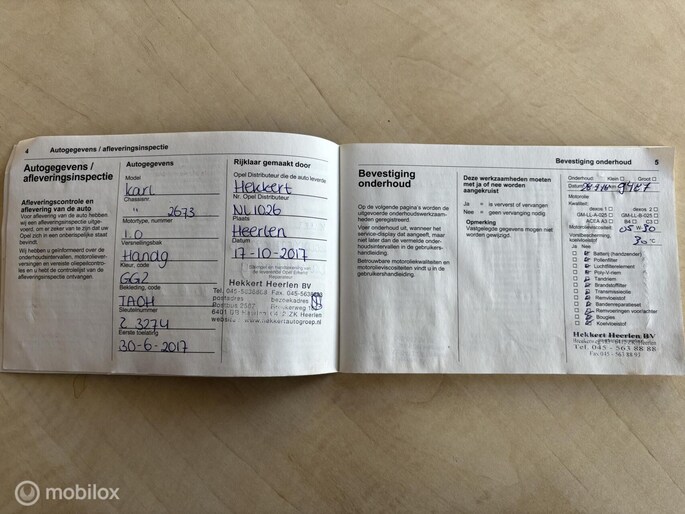 4 Autogegevens / afleveringsinspectie
Autogegevens /
afleveringsinspectie
Afleveringscontrole en
aflevering van de auto
Voor aflevering van de auto hebben
wij een afleveringsinspectie uitge-
voerd, om er zeker van te zijn dat uw
Opel zich in een onberispelijke staat
bevindt.
Wij hebben u geïnformeerd over de
onderhoudsintervallen, motoroliever-
versingen en vereiste oliepeilcontro-
les en u hebt de controlelijst van de
afleveringsinspectie ontvangen.
Autogegevens
Model
Karl
Chassisnr.
2673
Motortype, nummer
1.0
Versnellingsbak
Handg
Kleur, code
GG2
Bekleding, code
TAOH
Sleutelnummer
Z 3274
Eerste toelating
30-6-2017
Rijklaar gemaakt door
Opel Distributeur die de auto leverde
Hekkert
Nr. Opel Distributeur
NL1026
Plaats
Heerlen
Datum
17-10-2017
Hekkert Heerlen BV
Tel. 045-5638888 Fax. 045-
postadres bezoekadres
Postbus 2582
6401 DB Heerlen ZK Heerlen
website www.hekkertautogroep.nl
Bevestiging onderhoud 5
Bevestiging
onderhoud
Op de volgende pagina's worden de
uitgevoerde onderhoudswerkzaam-
heden geregistreerd.
Voer onderhoud uit, wanneer het
service-display dat aangeeft, maar
niet later dan de vermelde onder-
houdsintervallen in de gebruikers-
handleiding.
Betrouwbare motoroliekwaliteiten en
motorolieviscositeiten vindt u in de
gebruikershandleiding.
Deze werkzaamheden moeten
met ja of nee worden
aangekruist
Ja = is ververst of vervangen
Nee = geen vervanging nodig
Opmerking
Vastgelegde gegevens mogen niet
worden gewijzigd.
Onderhoud Klein Groot
Datum km
Motorolie
Kwaliteit:
dexos 1 dexos 2
GM-LL-A-025 GM-LL-B-025
ACEA A3 B4 C3
Motorolieviscositeit 05 W-30
Vorstbescherming,
koelvloeistof 30 °C
Ja Nee
Batterij (handzender)
Pollenfilter
Luchtfilterelement
Poly-V-riem
Tandriem
Brandstoffilter
Transmissieolie
Remvloeistof
Bandenreparatieset
Remvoeringen voor/achter
Bougies
Koelvloeistof
Hekkert Heerlen BV
Tel. 045 - 563 88 88
Fax 045 - 563 88 93
mobilox